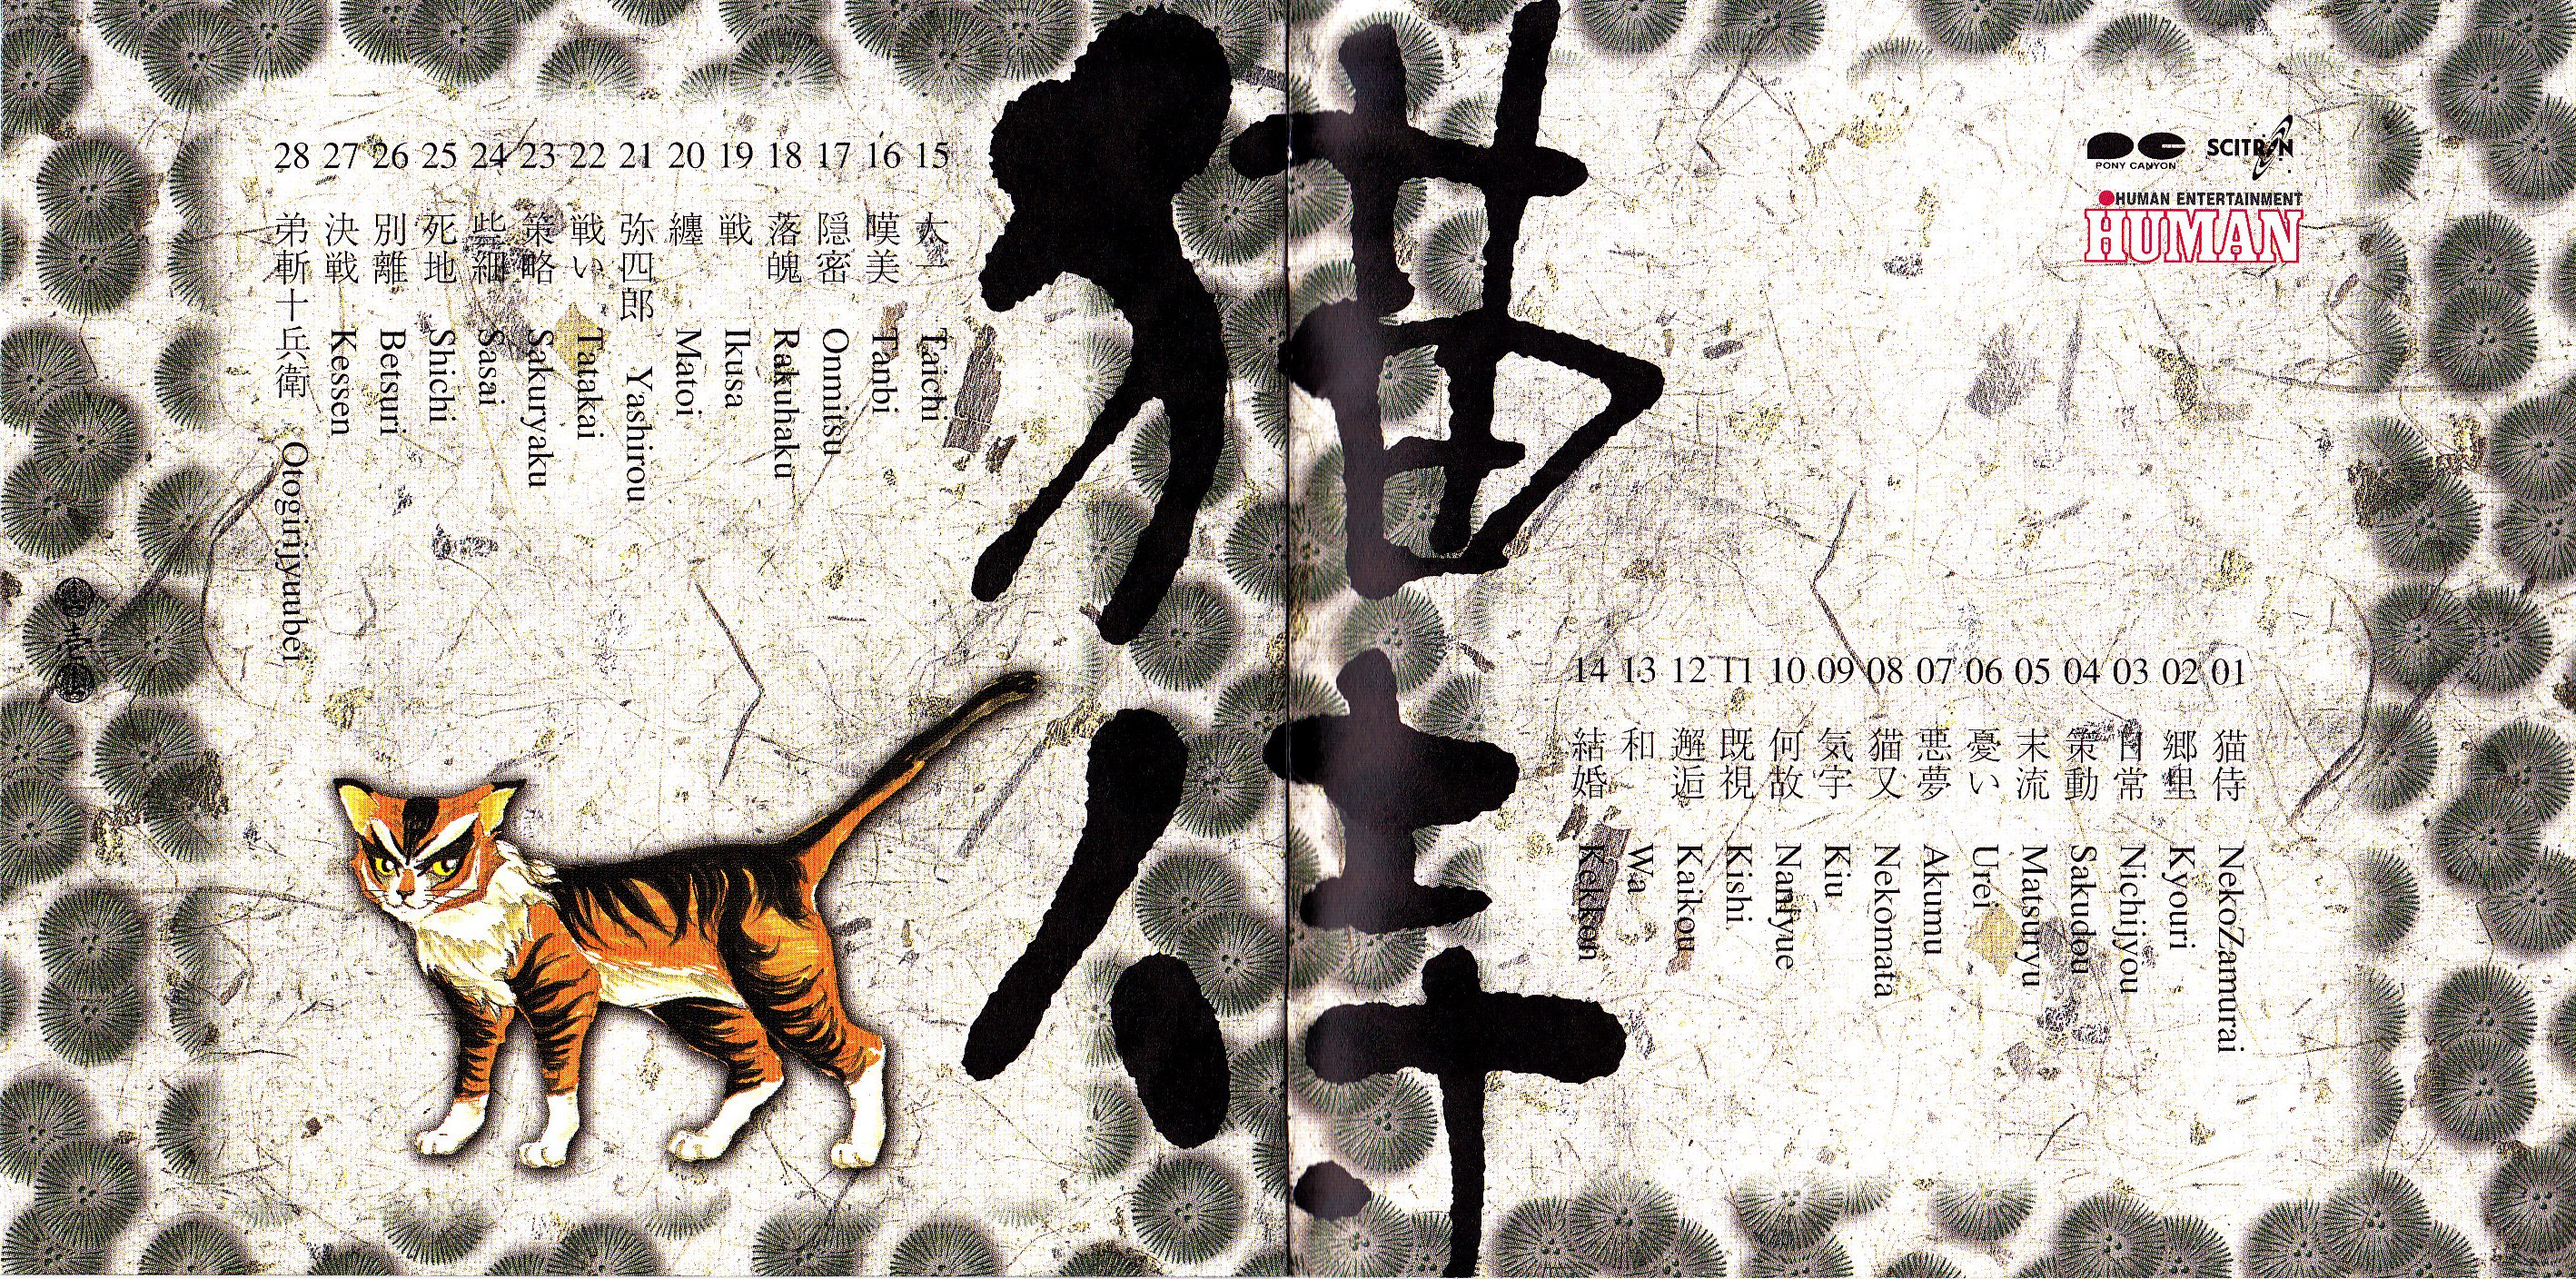 PONY CANYON
SCITRON
HUMAN ENTERTAINMENT
HUMAN
猫侍
01 猫侍 NekoZamurai
02 郷里 Kyouri
03 日常 Nichijyou
04 策動 Sakudou
05 末流 Matsuryu
06 憂い Urei
07 悪夢 Akumu
08 猫又 Nekomata
09 気宇 Kiu
10 何故 Naniyue
11 既視 Kishi
12 邂逅 Kaikou
13 和 Wa
14 結婚 Kekkon
15 太一 Taichi
16 嘆美 Tanbi
17 隠密 Onmitsu
18 落魄 Rakuhaku
19 戦 Ikusa
20 纏 Matoi
21 弥四郎 Yashirou
22 戦い Tatakai
23 策略 Sakuryaku
24 些細 Sasai
25 死地 Shichi
26 別離 Betsuri
27 決戦 Kessen
28 弟斬十兵衛 Otogirijyuubei